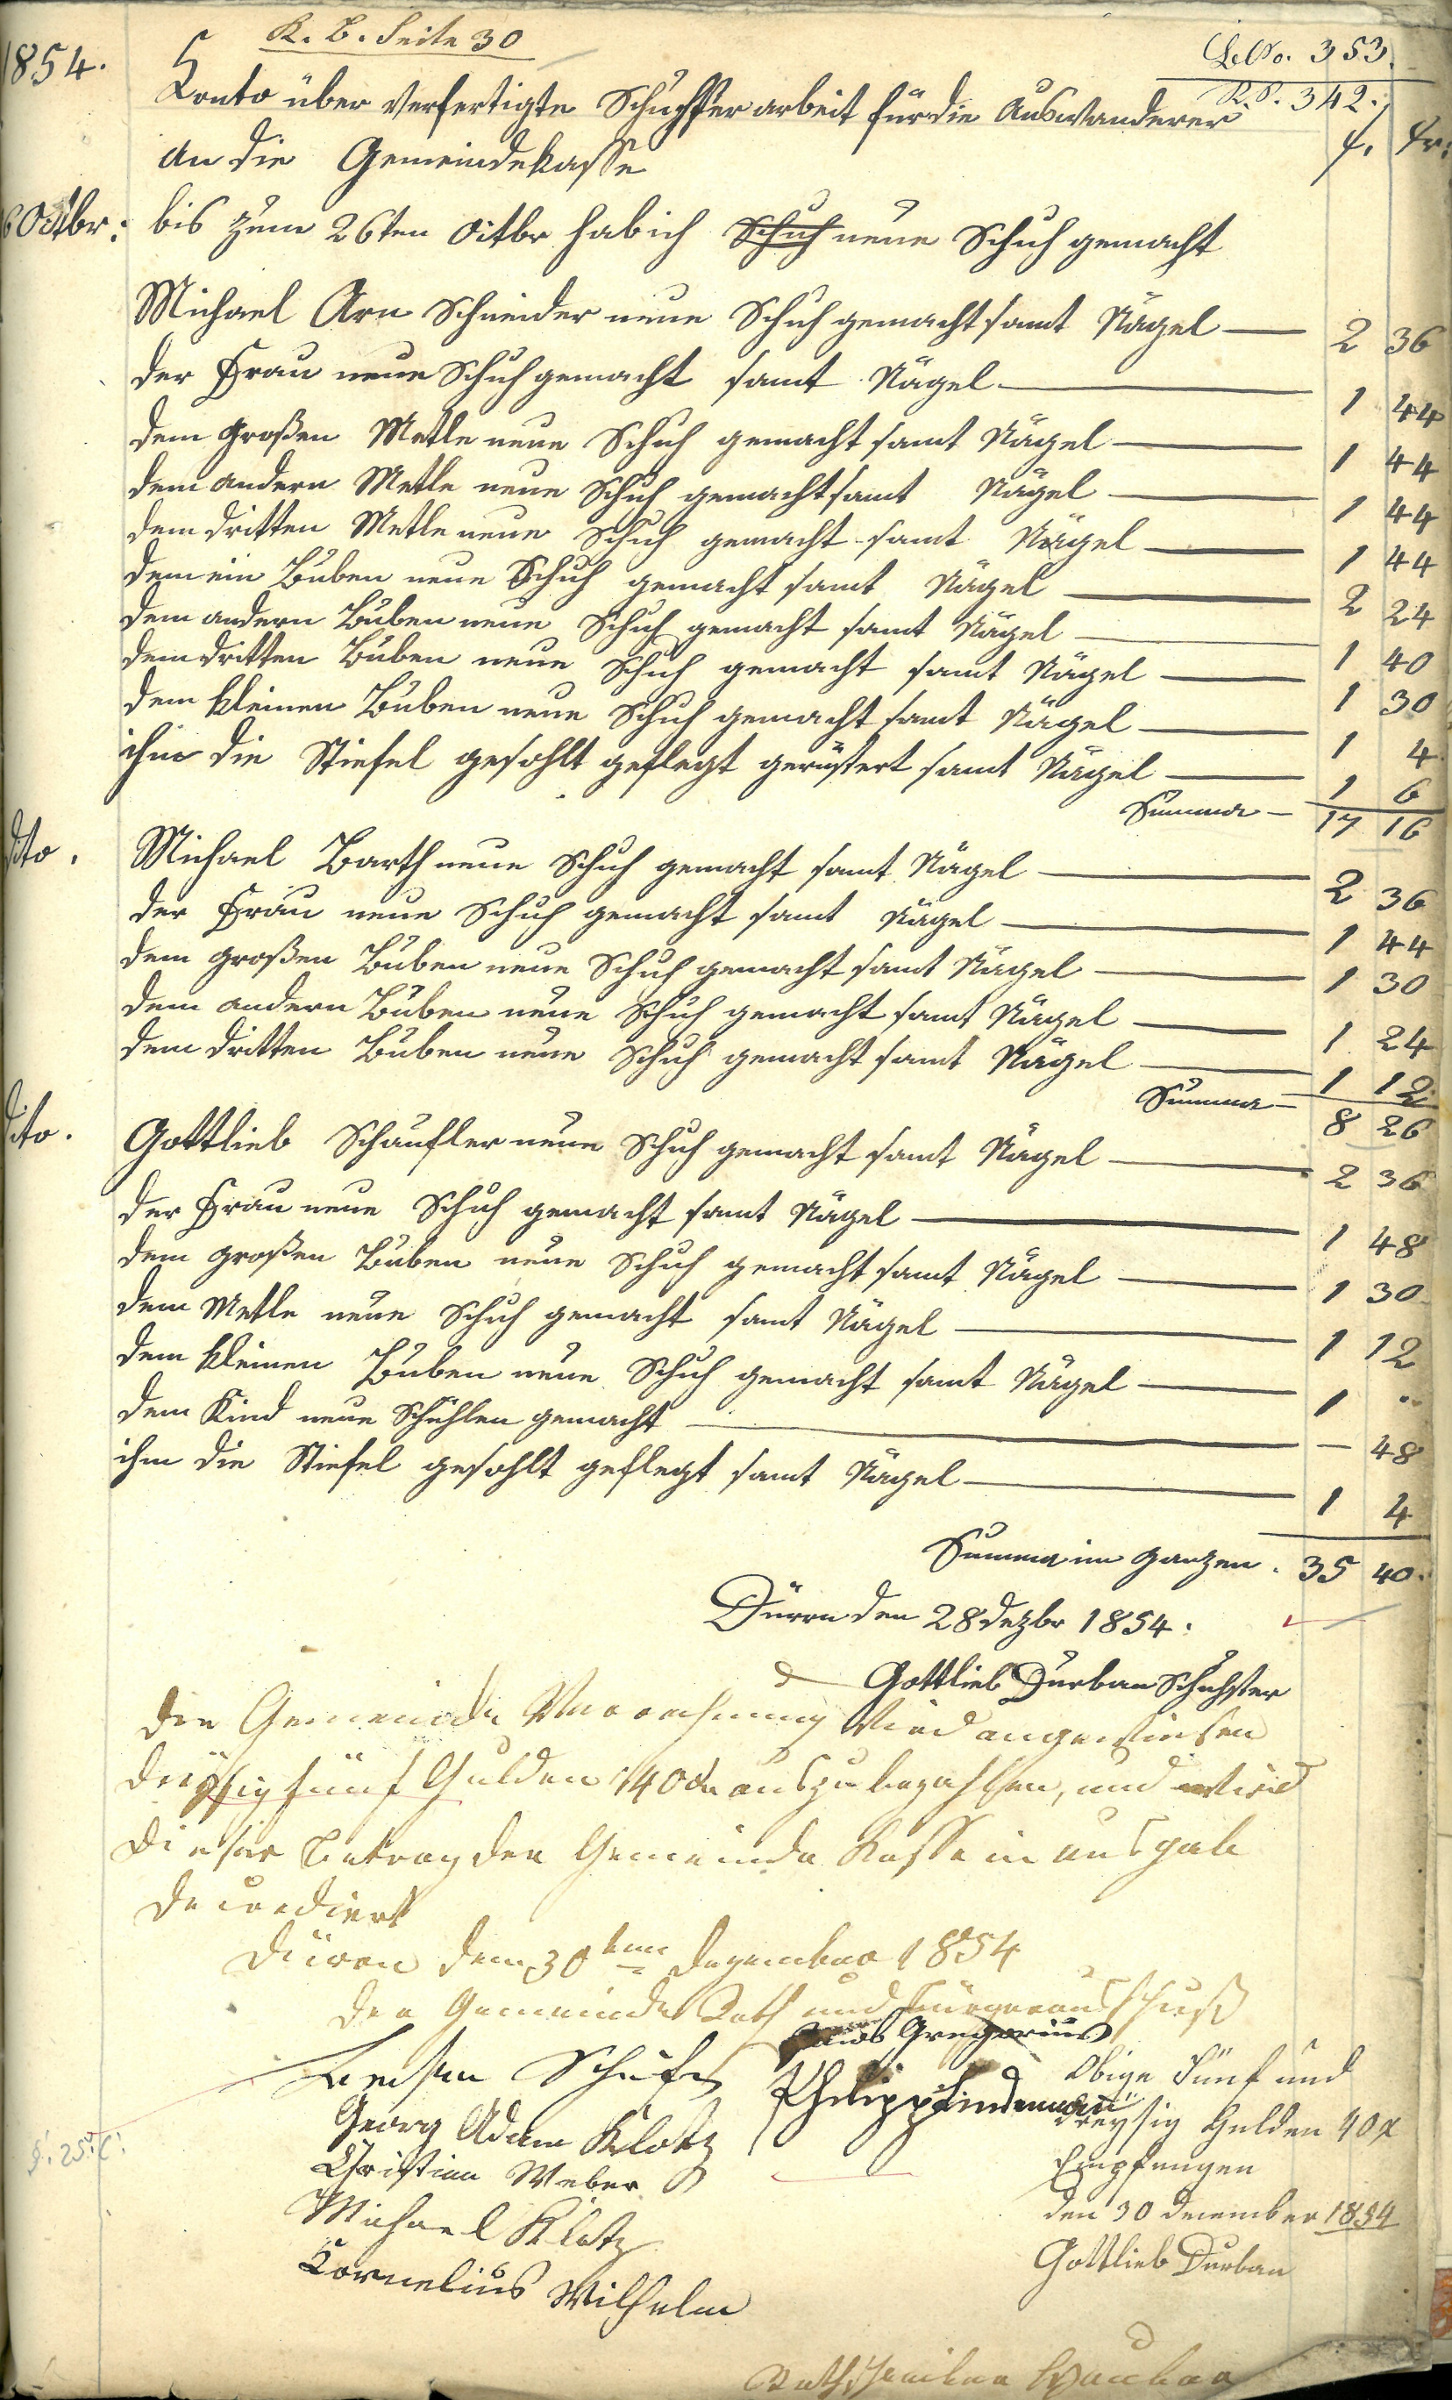 K. B. Seite 30
LeNo. 353.
R.S. 342.
1854.
Conto über verfertigte Schuhster arbeit für die Auswanderer
an die Gemeindekasse
f. kr:
6 Octbr: bis zum 26ten Octbr hab ich Schuh neue Schuh gemacht
Michael Arn Schneider neue Schuh gemacht samt Nägel — 2 36
der Frau neue Schuh gemacht samt Nägel — 1 44
dem großen Metle neue Schuh gemacht samt Nägel — 1 44
dem andern Metle neue Schuh gemacht samt Nägel — 1 44
dem dritten Metle neue Schuh gemacht samt Nägel — 1 44
dem ein Buben neue Schuh gemacht samt Nägel — 2 24
dem andern Buben neue Schuh gemacht samt Nägel — 1 40
dem dritten Buben neue Schuh gemacht samt Nägel — 1 30
dem kleinen Buben neue Schuh gemacht samt Nägel — 1 4
ihm die Stiefel gesohlt geflegt gerüstert samt Nägel — 1 6
Summa — 17 16
dito. Michael Barth neue Schuh gemacht samt Nägel — 2 36
der Frau neue Schuh gemacht samt Nägel — 1 44
dem großen Buben neue Schuh gemacht samt Nägel — 1 30
dem andern Buben neue Schuh gemacht samt Nägel — 1 24
dem dritten Buben neue Schuh gemacht samt Nägel — 1 12
Summa — 8 26
dito. Gottlieb Schaufler neue Schuh gemacht samt Nägel — 2 36
der Frau neue Schuh gemacht samt Nägel — 1 48
dem großen Buben neue Schuh gemacht samt Nägel — 1 30
dem Metle neue Schuh gemacht samt Nägel — 1 12
dem kleinen Buben neue Schuh gemacht samt Nägel — 1 "
dem Kind neue Schühlen gemacht — — 48
ihm die Stiefel gesohlt geflegt samt Nägel — 1 4
Summa im ganzen. 35 40.
Dürrn den 28 Dezbr 1854.
Gottlieb Durban Schuhster
Die Gemeinde Verrechnung wird angewiesen
dreysig fünf Gulden 40 kr auszubezahlen, und wird
dieser Betrag der Gemeinde Kasse in Ausgab
decrediert
Dürrn dem 30ten Dezember 1854
Der Gemeinde Rath und Bürgerausschuß
Gregorius
Schufs
Philipp Lindemann
Georg Adam Klotz
Christian Weber
Michael Klotz
Cornelius Wilhelm
Obige Fünf und
dreysig Gulden 40 x
Empfangen
den 30 December 1854
Gottlieb Durban
§. 25.
Rathschreiber